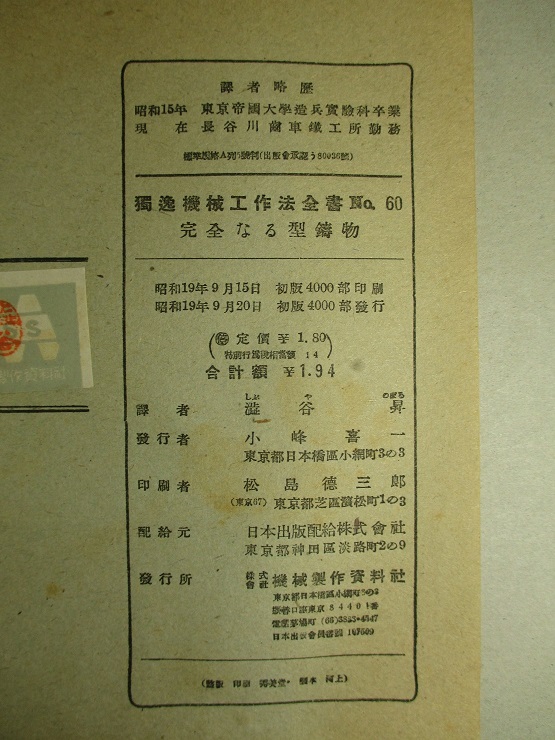 譯者略歷
昭和15年 東京帝國大學造兵實驗科卒業
現在 長谷川齒車鐵工所勤務
獨逸機械工作法全書 No. 60
完全なる型鑄物
昭和19年9月15日 初版4000部印刷
昭和19年9月20日 初版4000部發行
定價 ¥1.80
特別行爲稅相當額 14
合計額 ¥1.94
譯者 澁谷昇
しぶ や のぼる
發行者 小峰喜一
東京都日本橋區小網町3の3
印刷者 松島德三郎
(東京67) 東京都芝區濱松町1の3
配給元 日本出版配給株式會社
東京都神田區淡路町2の9
發行所 株式會社 機械製作資料社
東京都日本橋區小網町3の3